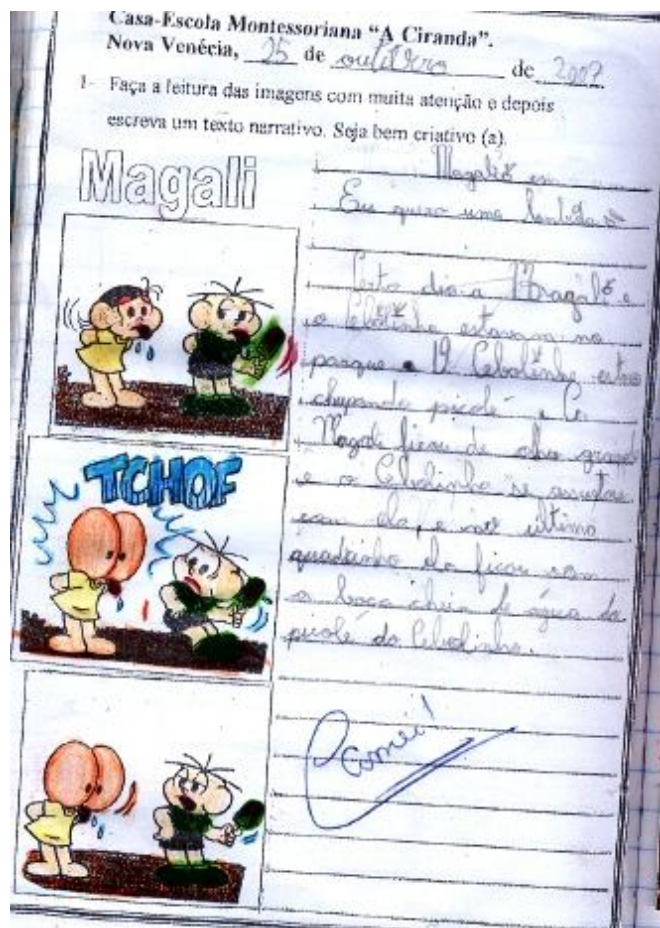 Casa-Escola Montessoriana “A Ciranda”.
Nova Venécia, 25 de outubro de 2007
1- Faça a leitura das imagens com muita atenção e depois
escreva um texto narrativo. Seja bem criativo (a).
Magali
Magali em
Eu quero uma lambida
Certo dia a Magali e
o Cebolinha estavam no
parque. O Cebolinha estava
chupando picolé e a
Magali ficou de olho grande
e o Cebolinha se assustou
com ela, e no ultimo
quadrinho ela ficou com
a boca cheia de água do
picolé do Cebolinha.
TCHOF
Camei!